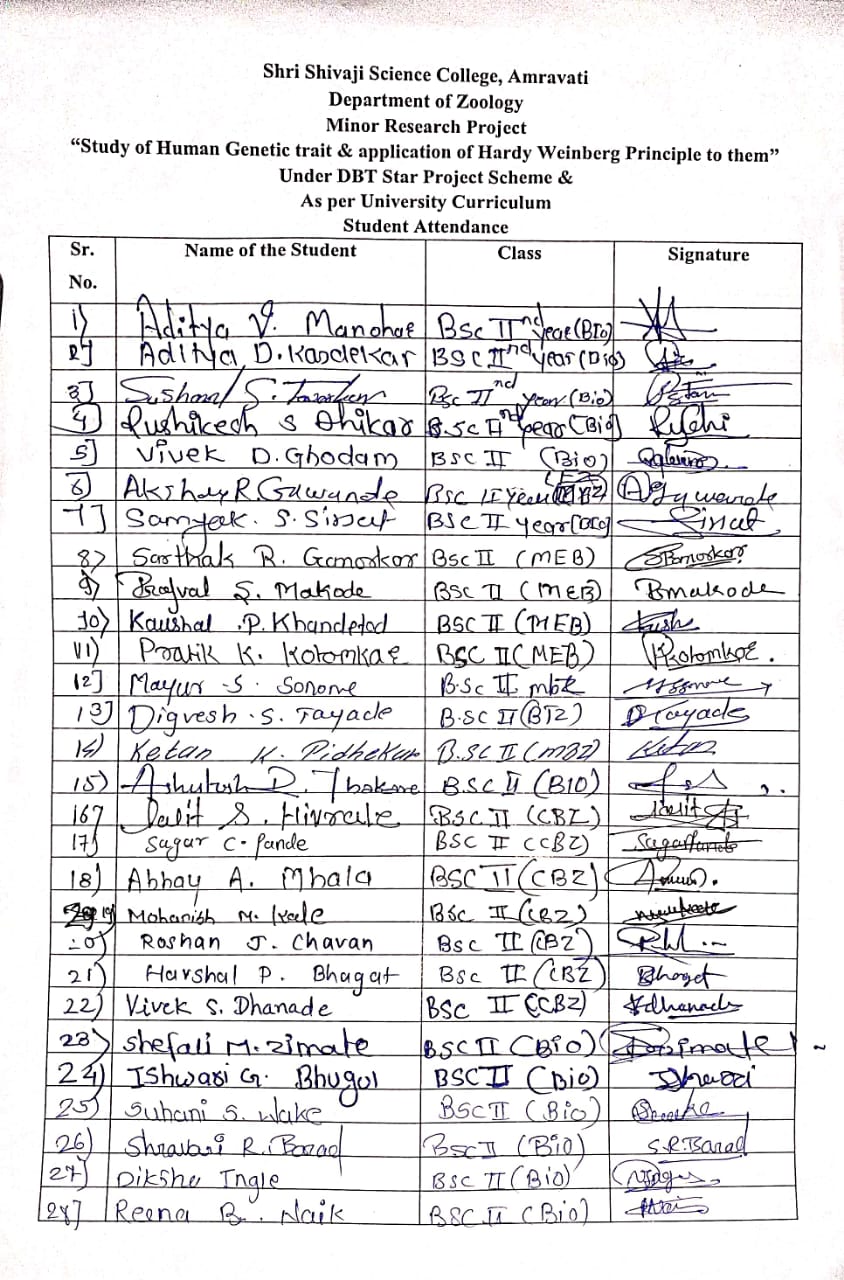 Shri Shivaji Science College, Amravati
Department of Zoology
Minor Research Project
“Study of Human Genetic trait & application of Hardy Weinberg Principle to them”
Under DBT Star Project Scheme &
As per University Curriculum
Student Attendance
Sr. No. Name of the Student Class Signature
1) Aditya V. Manohar BSc IInd year (BIO)
2] Aditya D. Kasdekar BSC IInd year (Bio)
3] Sushmal S. BSc IInd year (Bio)
4] Rushikesh S Dhikar B.SC IInd year (Bio) Rushi
5] Vivek D. Ghodam BSC II (Bio)
6] Akshay R. Gawande BSC II Year Agawande
7] Samyak. S. Sirsat BSC II year (Bio) Sirsat
8> Sarthak R. Gamorkar BSC II (MEB)
9> Prafval S. Makode BSC II (MEB) Bmakode
10) Kaushal .P. Khandetod BSC II (MEB) Kush
11) Pratik K. Kolomkar BSC II (MEB)
12] Mayur .S. Sonone B.Sc II mbk
13] Digvesh .S. Tayade B.SC II (BTZ) DTayade
14) Ketan K. Pidhekar B.SC II (MBZ) Ketan
15) Ashutosh D. Thakare B.SC II (BIO)
16) Lalit S. Hivrale BSC II (CBZ) Lalit
17) Sagar C. Pande BSC II (CBZ) SagarPande
18) Abhay A. Mhala BSC II (CBZ)
19) Mohanish M. BSC II (CBZ)
20) Roshan J. Chavan BSC II (CBZ)
21) Harshal P. Bhagat BSC II (CBZ) Bhagat
22) Vivek S. Dhanade BSC II (CBZ) Vdhanade
23) Shefali M. Zimate BSC II (Bio)
24) Ishwari G. Bhugul BSC II (Bio)
25) Suhani S. Wake BSC II (Bio)
26) Shravani R. Barad BSC II (Bio) S.R.Barad
27) Diksha Ingle BSC II (Bio)
28] Reena B. Naik BSC II (Bio)